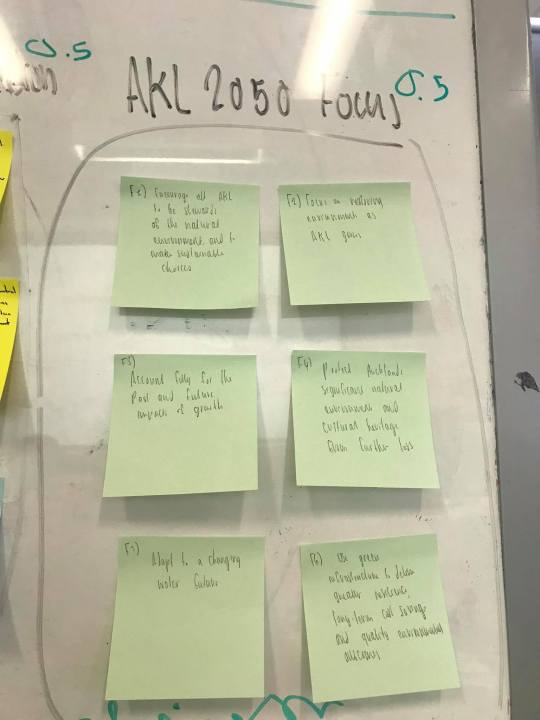 0.5
AKL 2050 Focus
0.5
F1) Encourage all AKL
to be stewards
of the natural
environment and to
make sustainable
choices
F2) Focus on restoring
environment as
AKL grows
F3)
Account fully for the
Past and future
impacts of growth
F4) Protect Aucklands
significant natural
environment and
cultural heritage
from further loss
F5) Adapt to a changing
water future
F6) Use green
infrastructure to deliver
greater resilience,
long-term cost savings
and quality environmental
outcomes